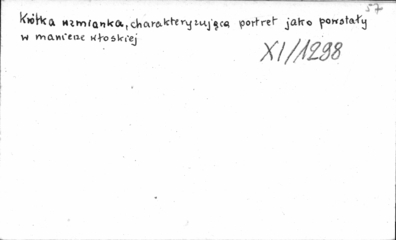 57
Krótka wzmianka, charakteryzująca portret jako powstały
w manierze włoskiej
XI/1298